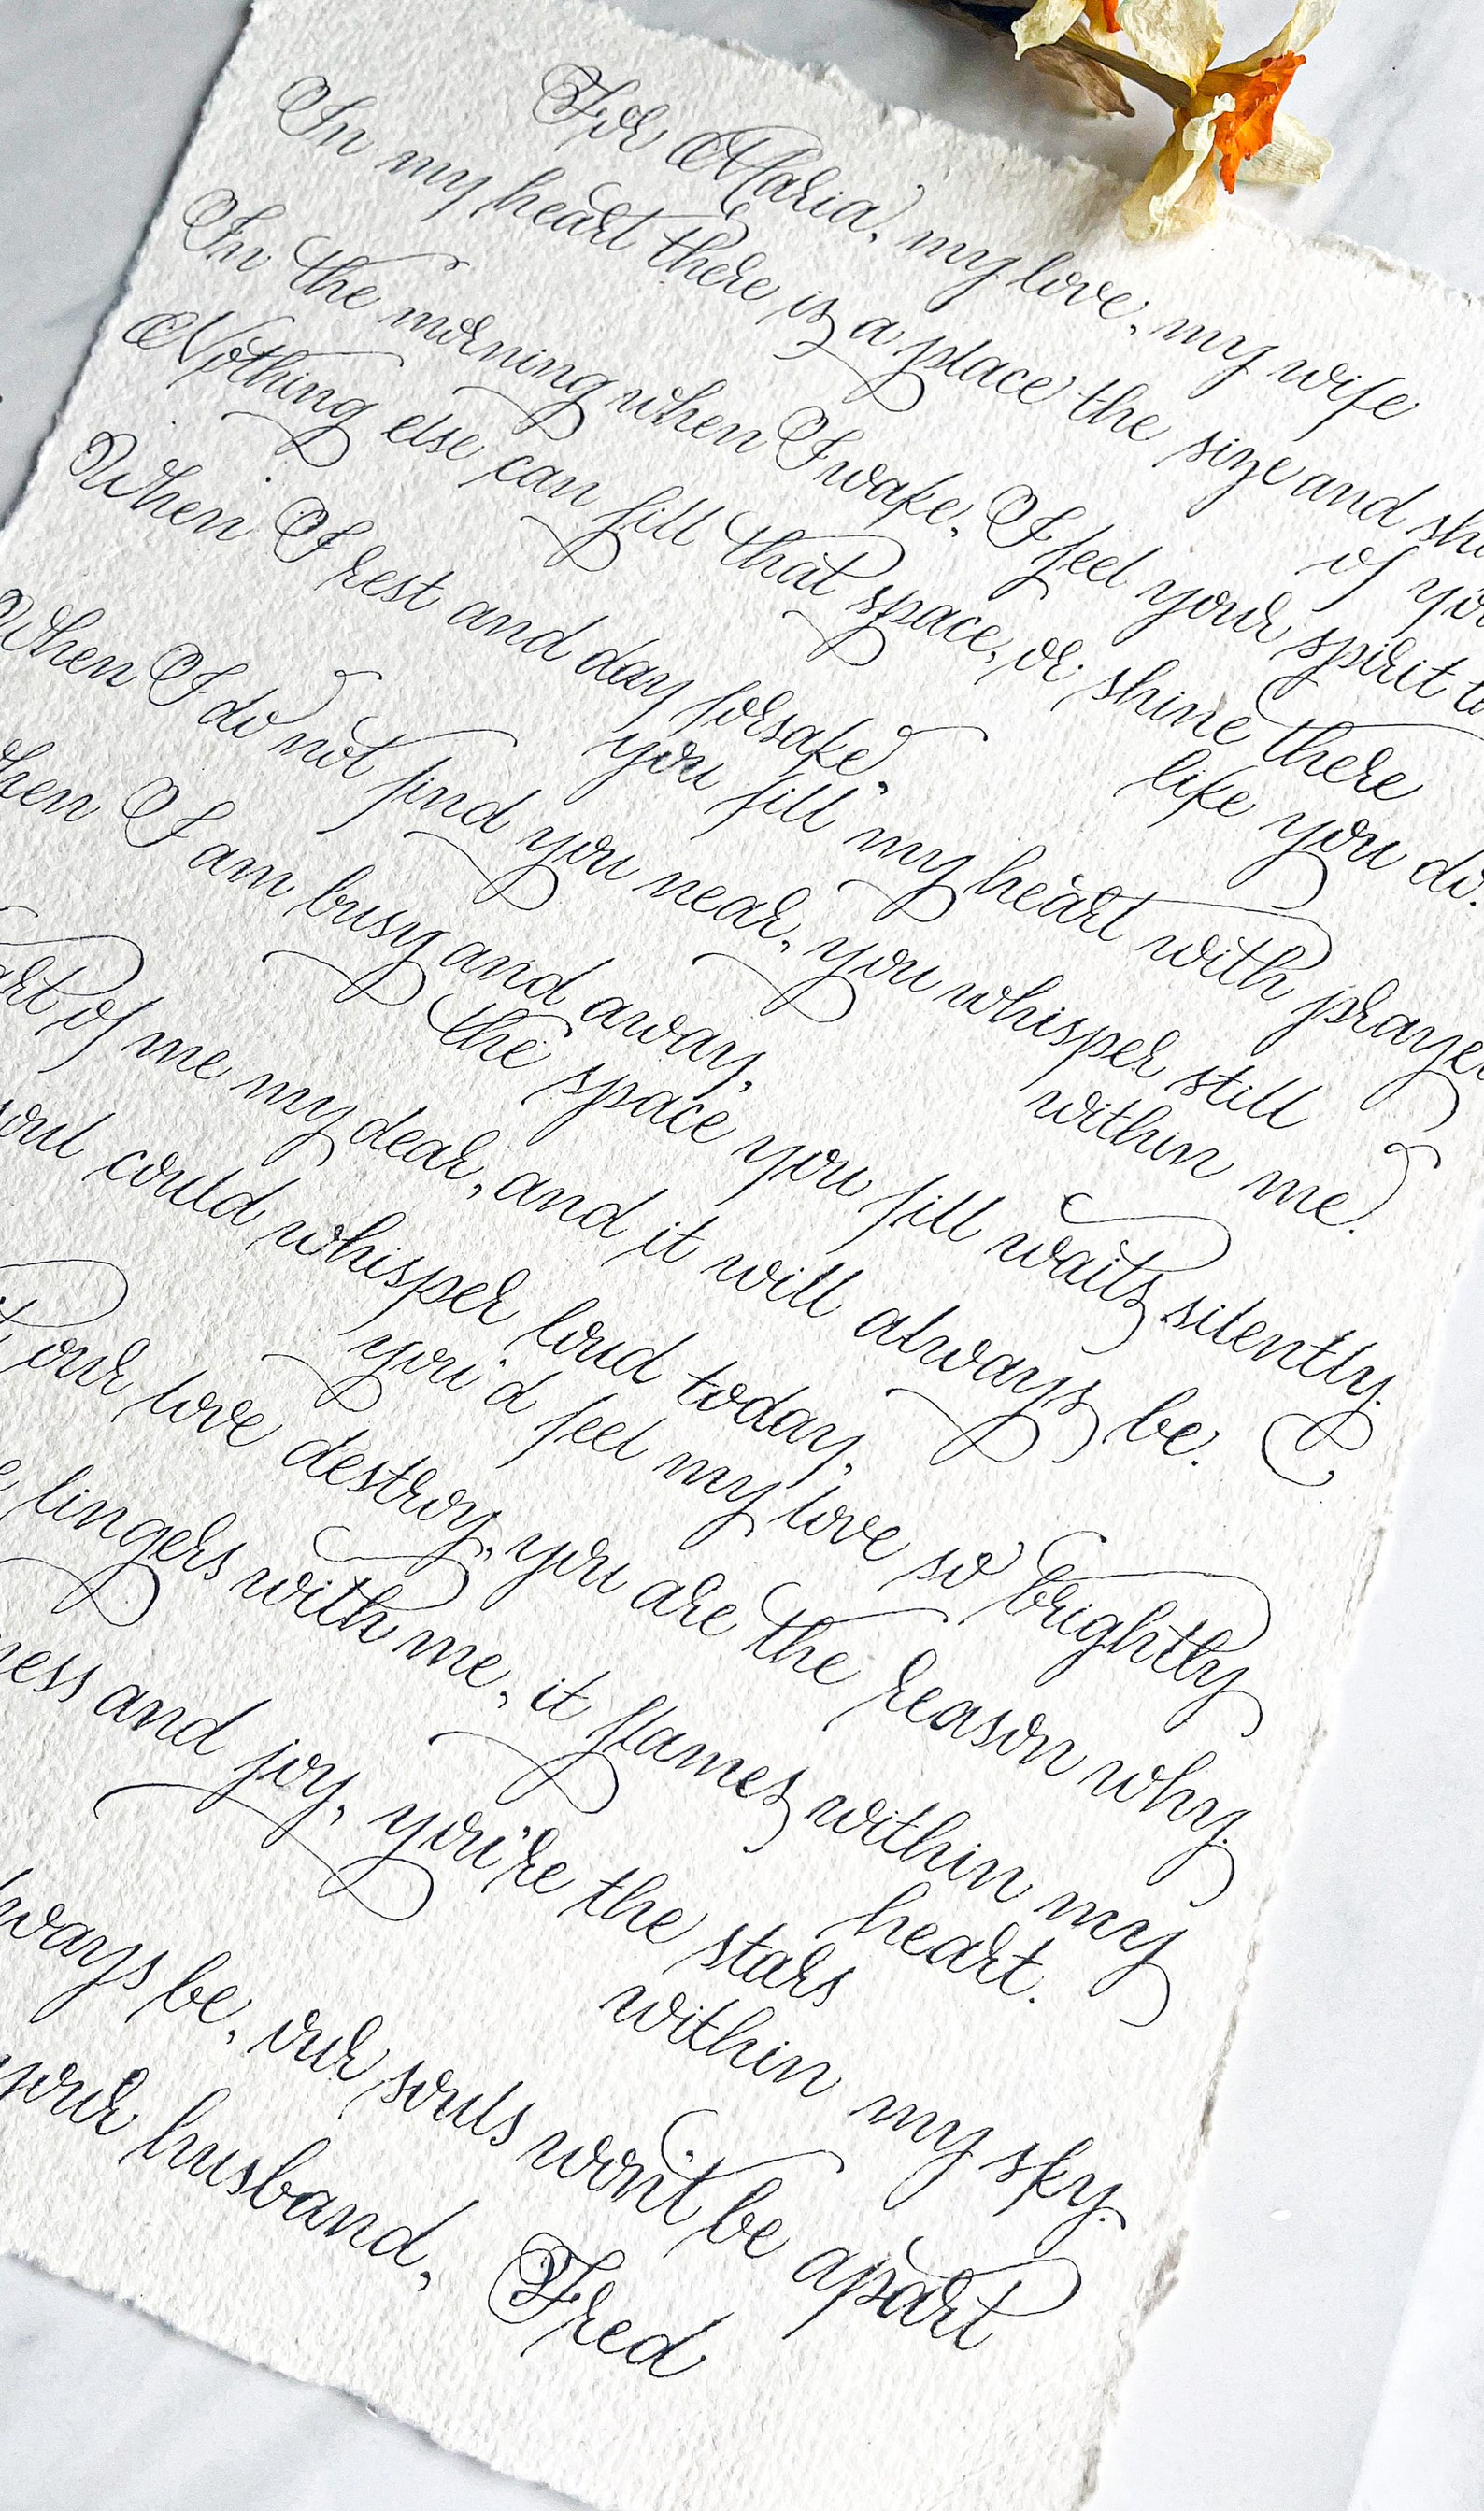 For Maria, my love, my wife
In my heart there is a place the size and
of
In the morning when I wake, I feel your spirit
Nothing else can fill that space, or shine there
like you do.
When I rest and day forsake,
you fill my heart with
When I do not find you near, you whisper still
within me.
When I am busy and away,
the space you fill waits silently.
of me my dear, and it will always be.
could whisper loud today,
you'd feel my love so brightly
our love destroy, you are the reason why.
lingers with me, it flames within my
heart.
and joy, you're the stars
within my sky.
be, our souls won't be apart
your husband, Fred